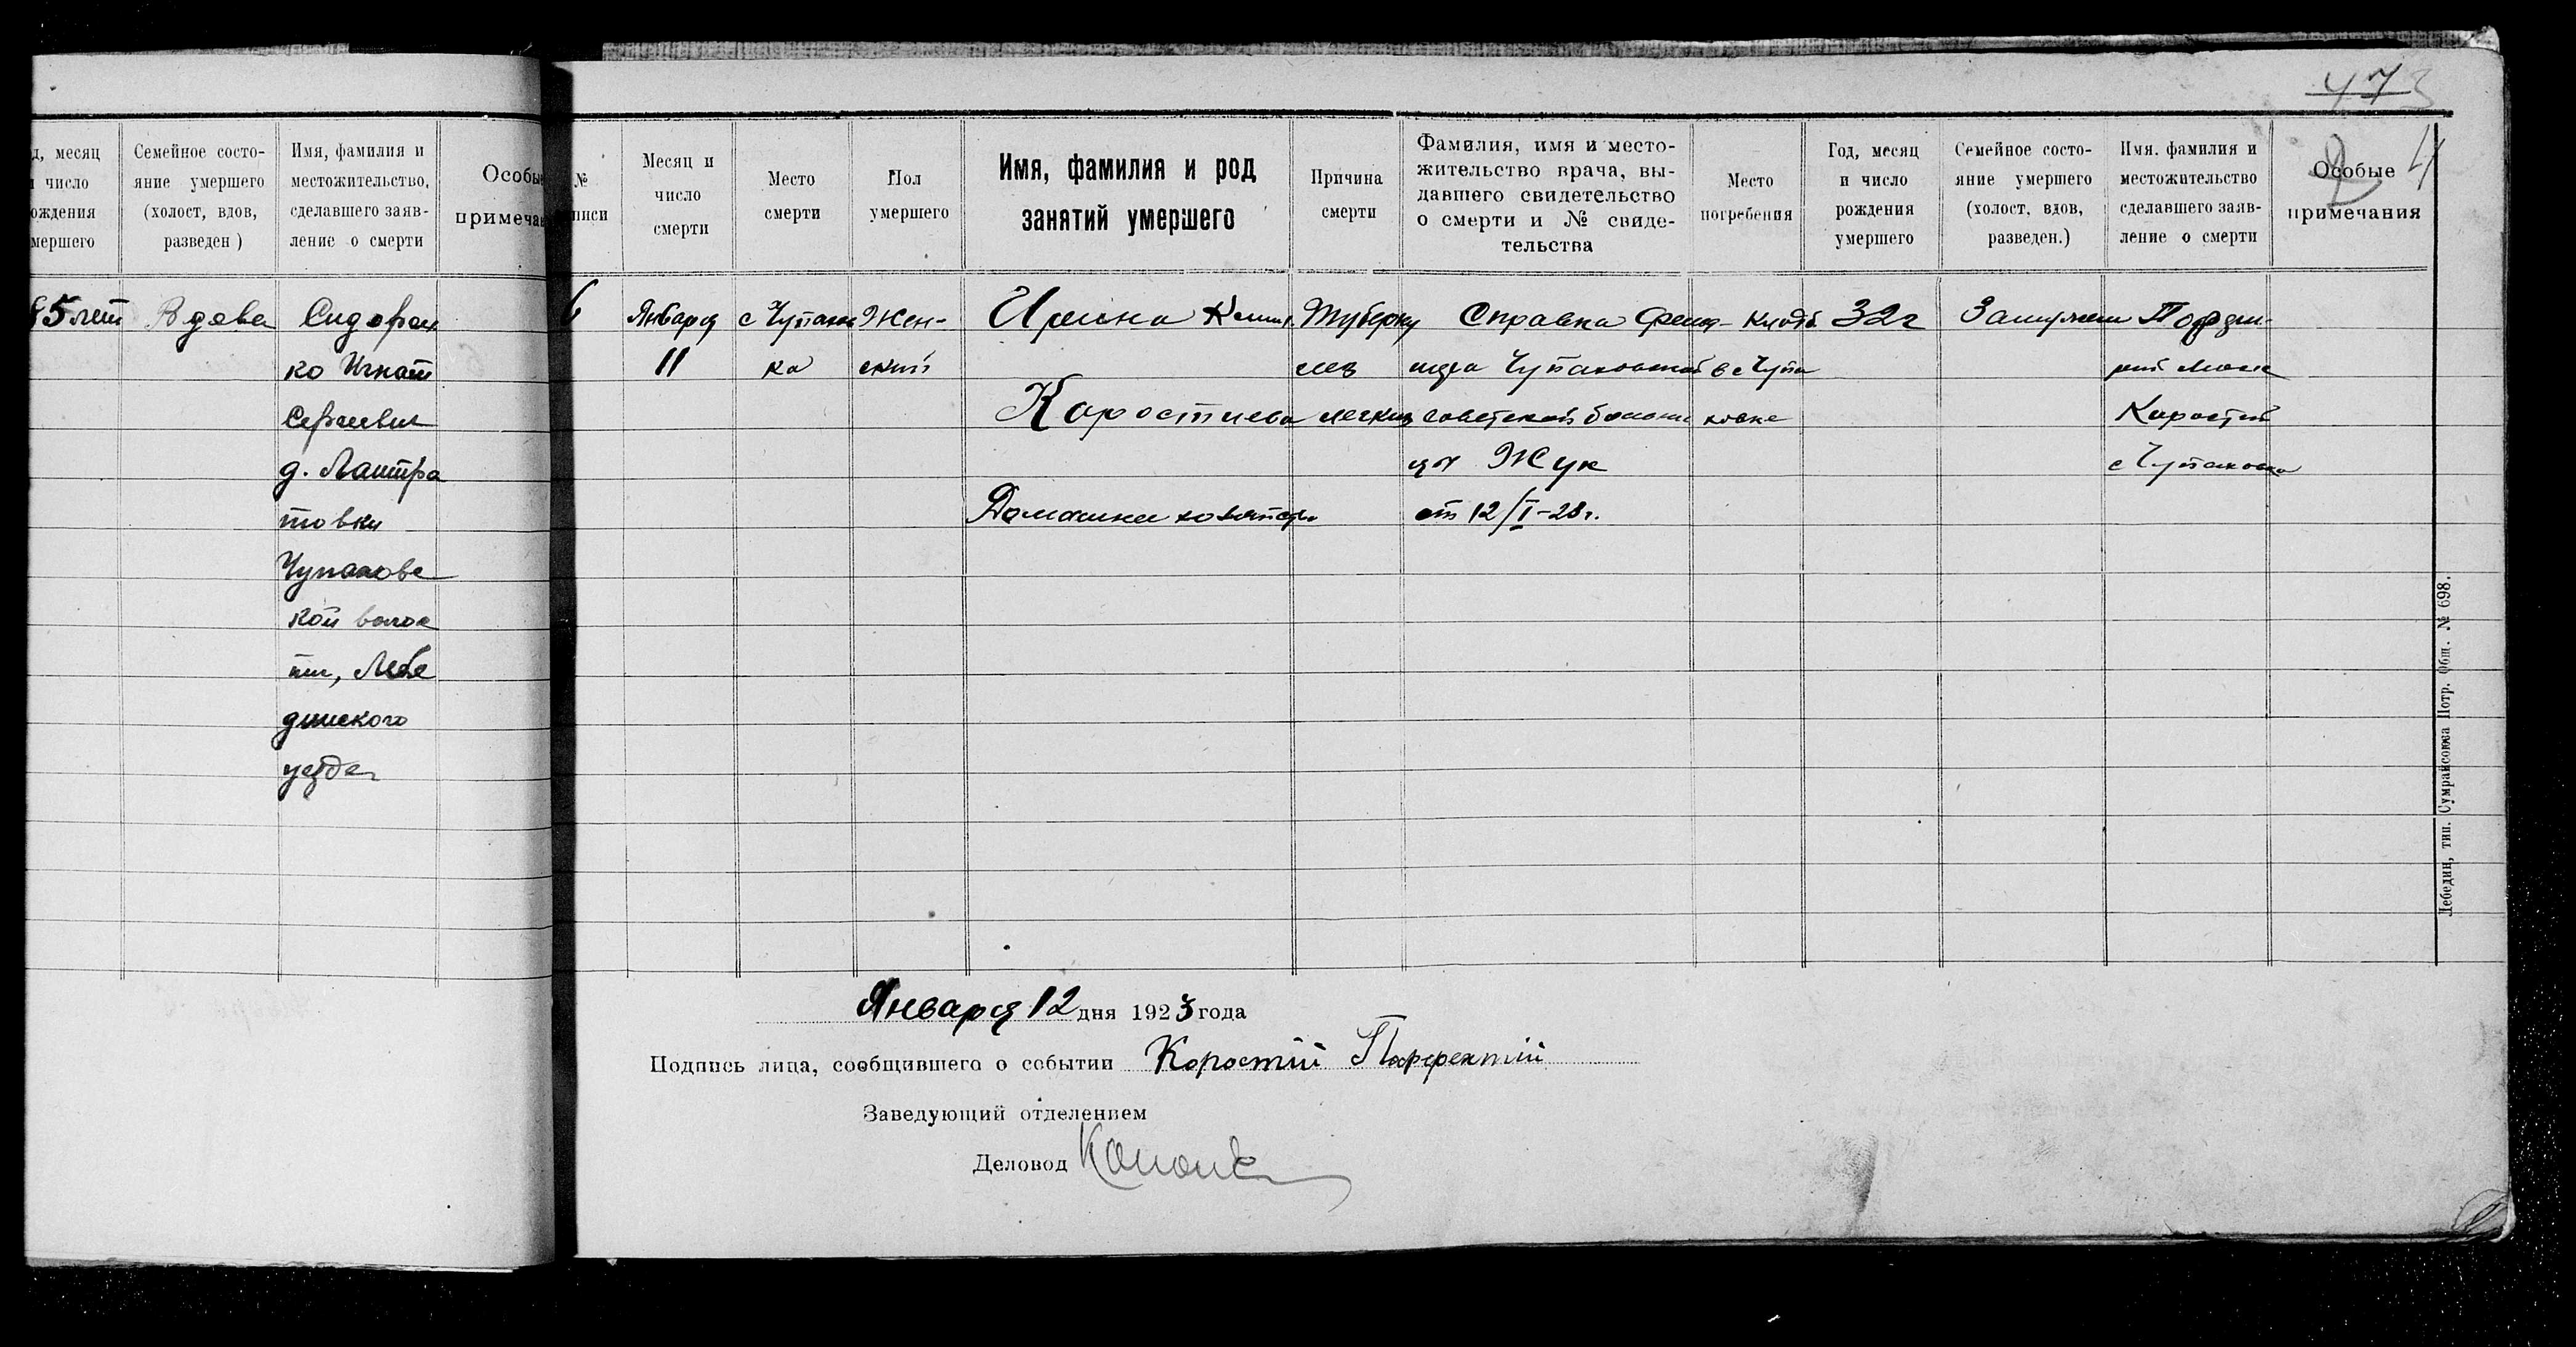 473
4
д, месяц
и число
ождения
мершего
Семейное состо-
яние умершего
(холост, вдов,
разведен)
Имя, фамилия и
местожительство,
сделавшего заяв-
ление о смерти
Особы
примечан
85 лет
Вдова
Сидорен
ко Игнат
Сергеевич
д. Лантра
товки
Чупаховс
кой волос
ти, Лебе
динского
уезда
№
писи
Месяц и
число
смерти
Место
смерти
Пол
умершего
Имя, фамилия и род
занятий умершего
Причина
смерти
Фамилия, имя и место-
жительство врача, вы-
давшего свидетельство
о смерти и № свиде-
тельства
Место
погребения
Год, месяц
и число
рождения
умершего
Семейное состо-
яние умершего
(холост, вдов,
разведен.)
Имя. фамилия и
местожительство
сделавшего заяв-
ление о смерти
Особые
примечания
6
Января
11
с Чупахов
ка
Жен-
ский
Ирина
Коростиева
Домашнее
Туберку
лез
легких
Справка фель-
шера Чупаховской
советской больни
цы Жук
от 12/I-23г.
Кладб.
в с Чупа
ховке
32 г
Замужем
Коростий
с Чупаховка
Января 12 дня 1923 года
Подпись лица, сообщившего о событии Коростій Парфентій
Заведующий отделением
Деловод
Лебедин, тип. Сумрайсоюза Потр. Общ. № 698.